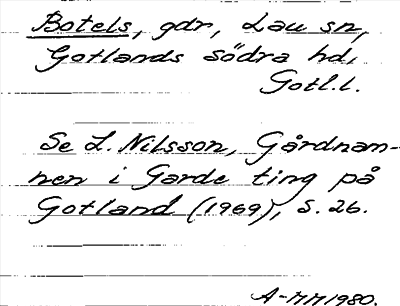 Botels, gdr, Lau sn,
Gotlands södra hd,
Gotl.l.
Se L. Nilsson, Gårdnam-
nen i Garde ting på
Gotland (1969), s. 26.
A-MM1980.